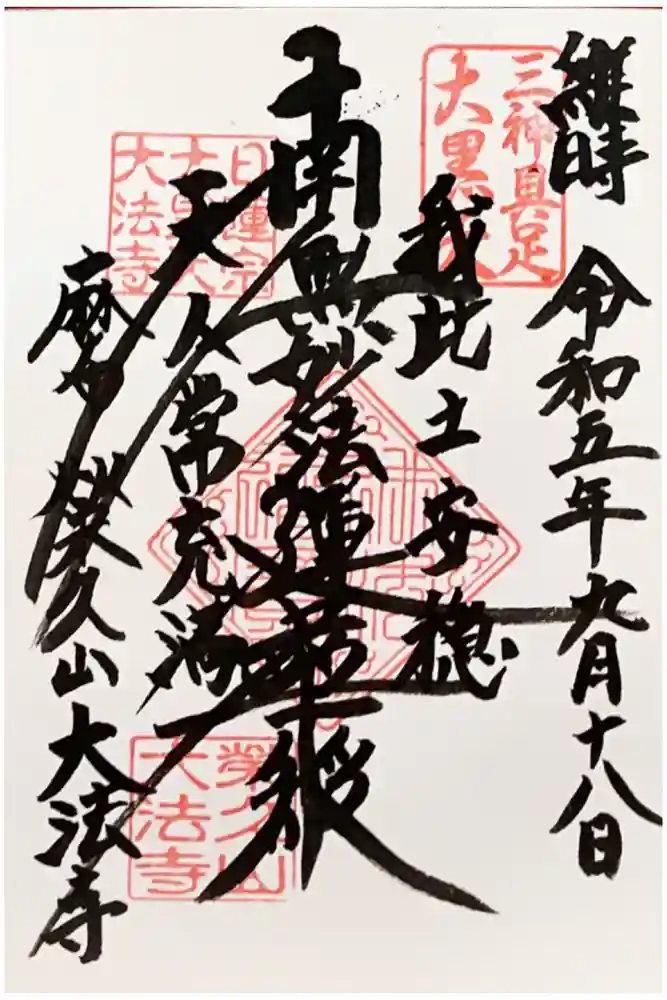 維時 令和五年九月十八日
三神具足
大黒天
我此土安穏
南無妙法蓮華経
天人常充満
麻布 榮久山大法寺
日蓮宗
大黒天
大法寺
榮久山
大法寺